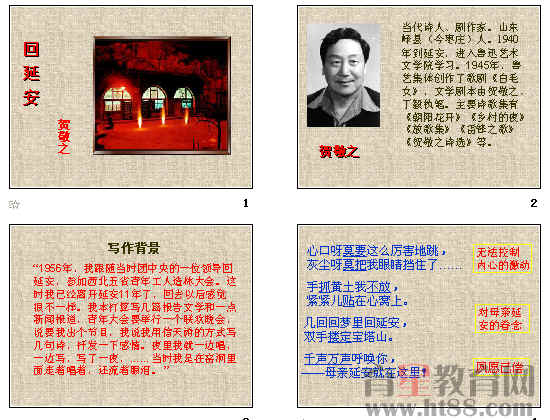 回延安
贺敬之
1
当代诗人、剧作家。山东
峄县(今枣庄)人。1940
年到延安,进入鲁迅艺术
文学院学习。1945年,鲁
艺集体创作了歌剧《白毛
女》,文学剧本由贺敬之、
丁毅执笔。主要诗歌集有
《朝阳花开》《乡村的夜》
《放歌集》《雷锋之歌》
《贺敬之诗选》等。
贺敬之
2
写作背景
“1956年,我跟随当时团中央的一位领导回
延安,参加西北五省青年工人造林大会。这
时我已经离开延安11年了,回去以后感触
很不一样。我本打算写几篇报告文学和一点
新闻报道,青年大会要举行一个联欢晚会,
说要我出个节目,我说我用信天游的方式写
几句诗,抒发一下感情。夜里我就一边唱,
一边写,写了一夜,……当时我是在窑洞里
面走着唱着,还流着眼泪。”
心口呀莫要这么厉害地跳,
灰尘呀莫把我眼睛挡住了……
无法控制
内心的激动
手抓黄土我不放,
紧紧儿贴在心窝上。
几回回梦里回延安,
双手搂定宝塔山。
对母亲延
安的眷念
千声万声呼唤你,
——母亲延安就在这里!
夙愿已偿
教育网
www.ht88.com